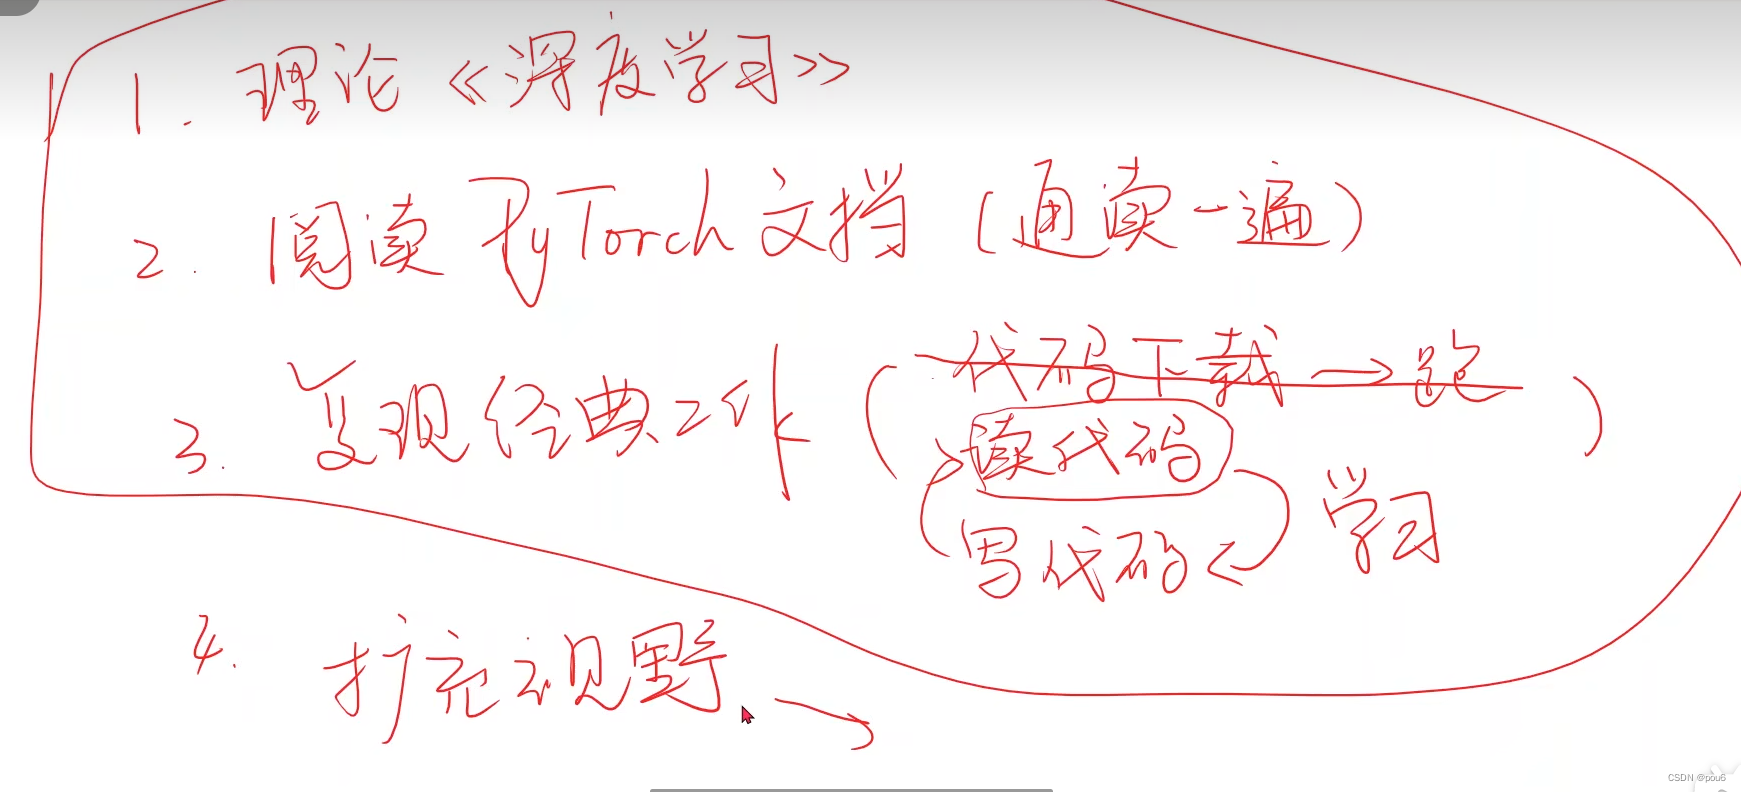 1. 理论《深度学习》
2. 阅读 PyTorch 文档 (通读一遍)
3. 复现经典工作 (代码下载 → 跑)
读代码
写代码 学习
4. 扩充视野
CSDN @pou6